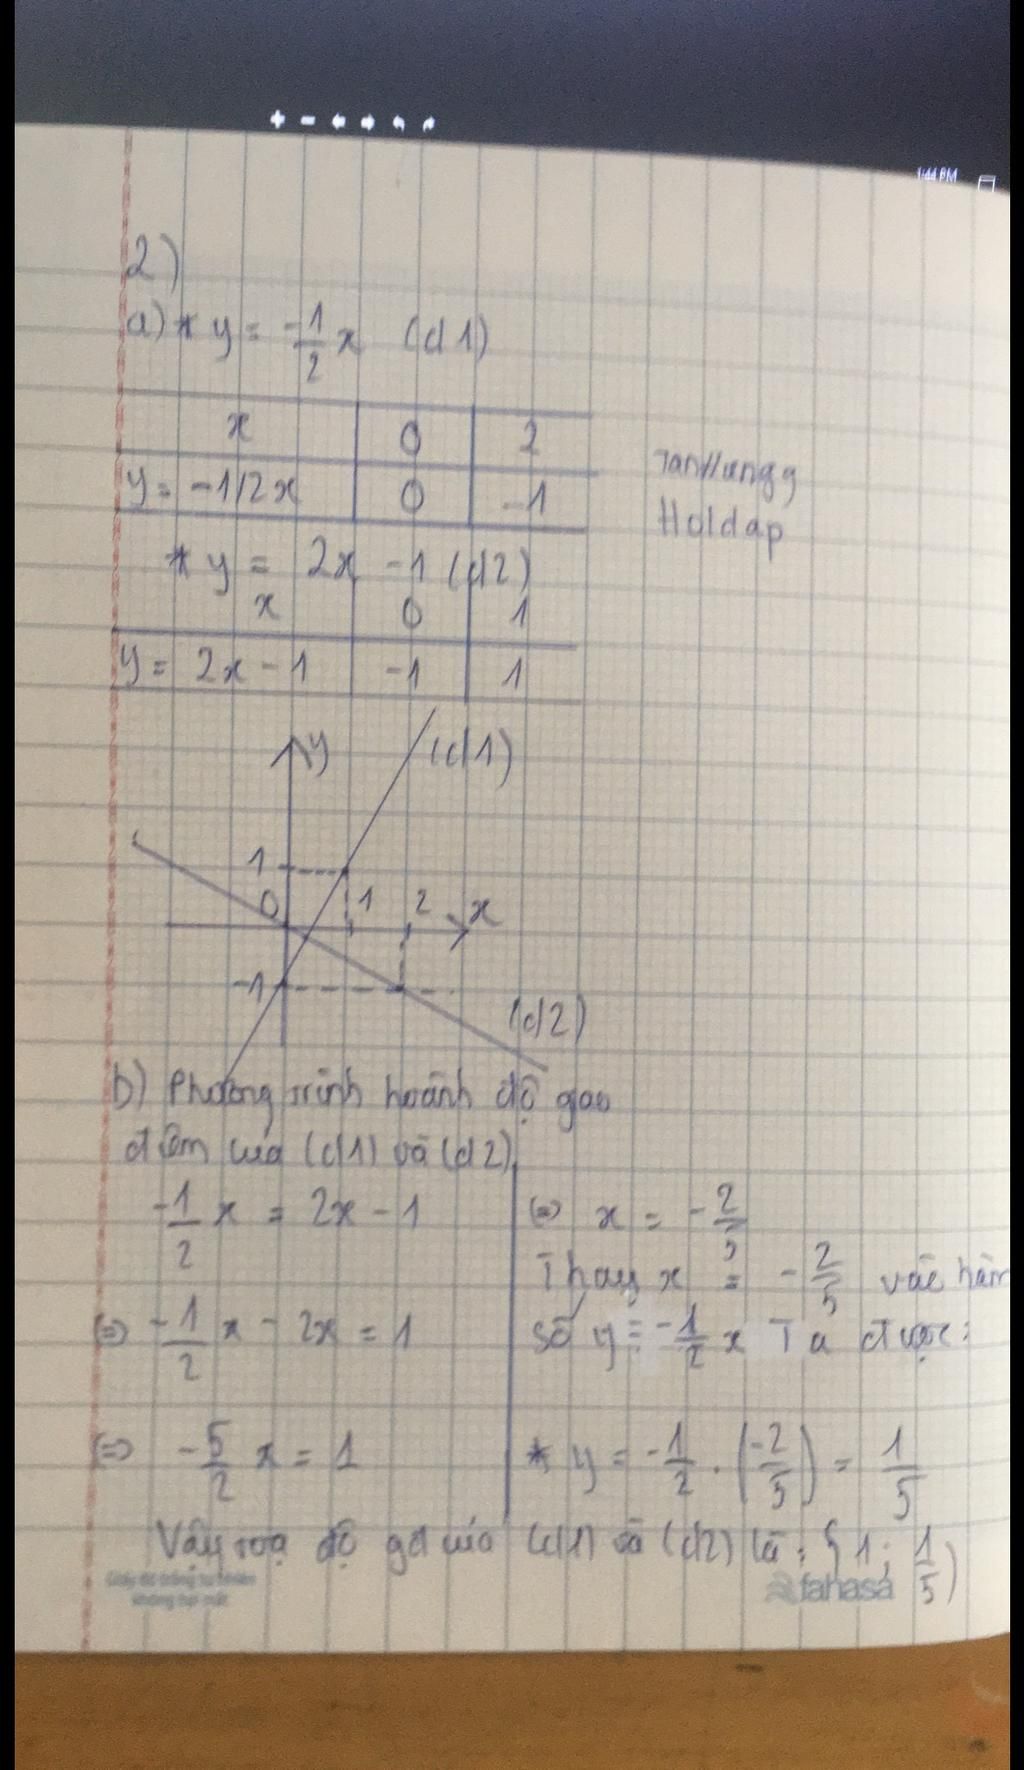 1:44 PM
2)
a) * y = -1/2 x (d1)
x 0 2
y = -1/2x 0 -1
TanHung9
Hoidap
* y = 2x - 1 (d2)
x 0 1
y = 2x - 1 -1 1
y (d1)
1
0 1 2 x
-1
(d2)
b) Phương trình hoành độ giao
điểm của (d1) và (d2)
-1/2 x = 2x - 1
<=> -1/2 x - 2x = 1
<=> -5/2 x = 1
<=> x = -2/5
Thay x = -2/5 vào hàm
số y = -1/2 x Ta được:
* y = -1/2 . (-2/5) = 1/5
Vậy toạ độ gđ của (d1) và (d2) là: { 1 ; 1/5 )
fahasa